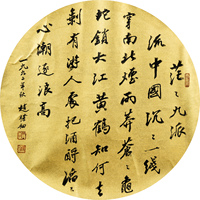 茫〻九派
流中國沉〻一綫
穿南北煙雨莽蒼〻龜
蛇鎖大江黃鶴知何去
剩有遊人處把酒酹滔〻
心潮逐浪高
一九九二年秋 趙